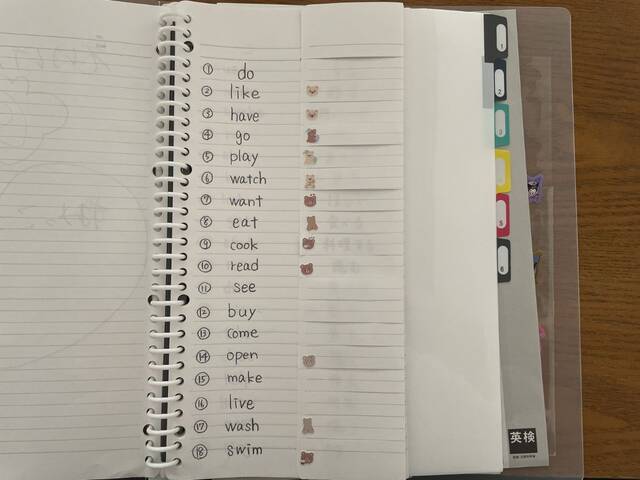 ① do
② like
③ have
④ go
⑤ play
⑥ watch
⑦ want
⑧ eat
⑨ cook
⑩ read
⑪ see
⑫ buy
⑬ come
⑭ open
⑮ make
⑯ live
⑰ wash
⑱ swim
1
2
3
5
6
英検